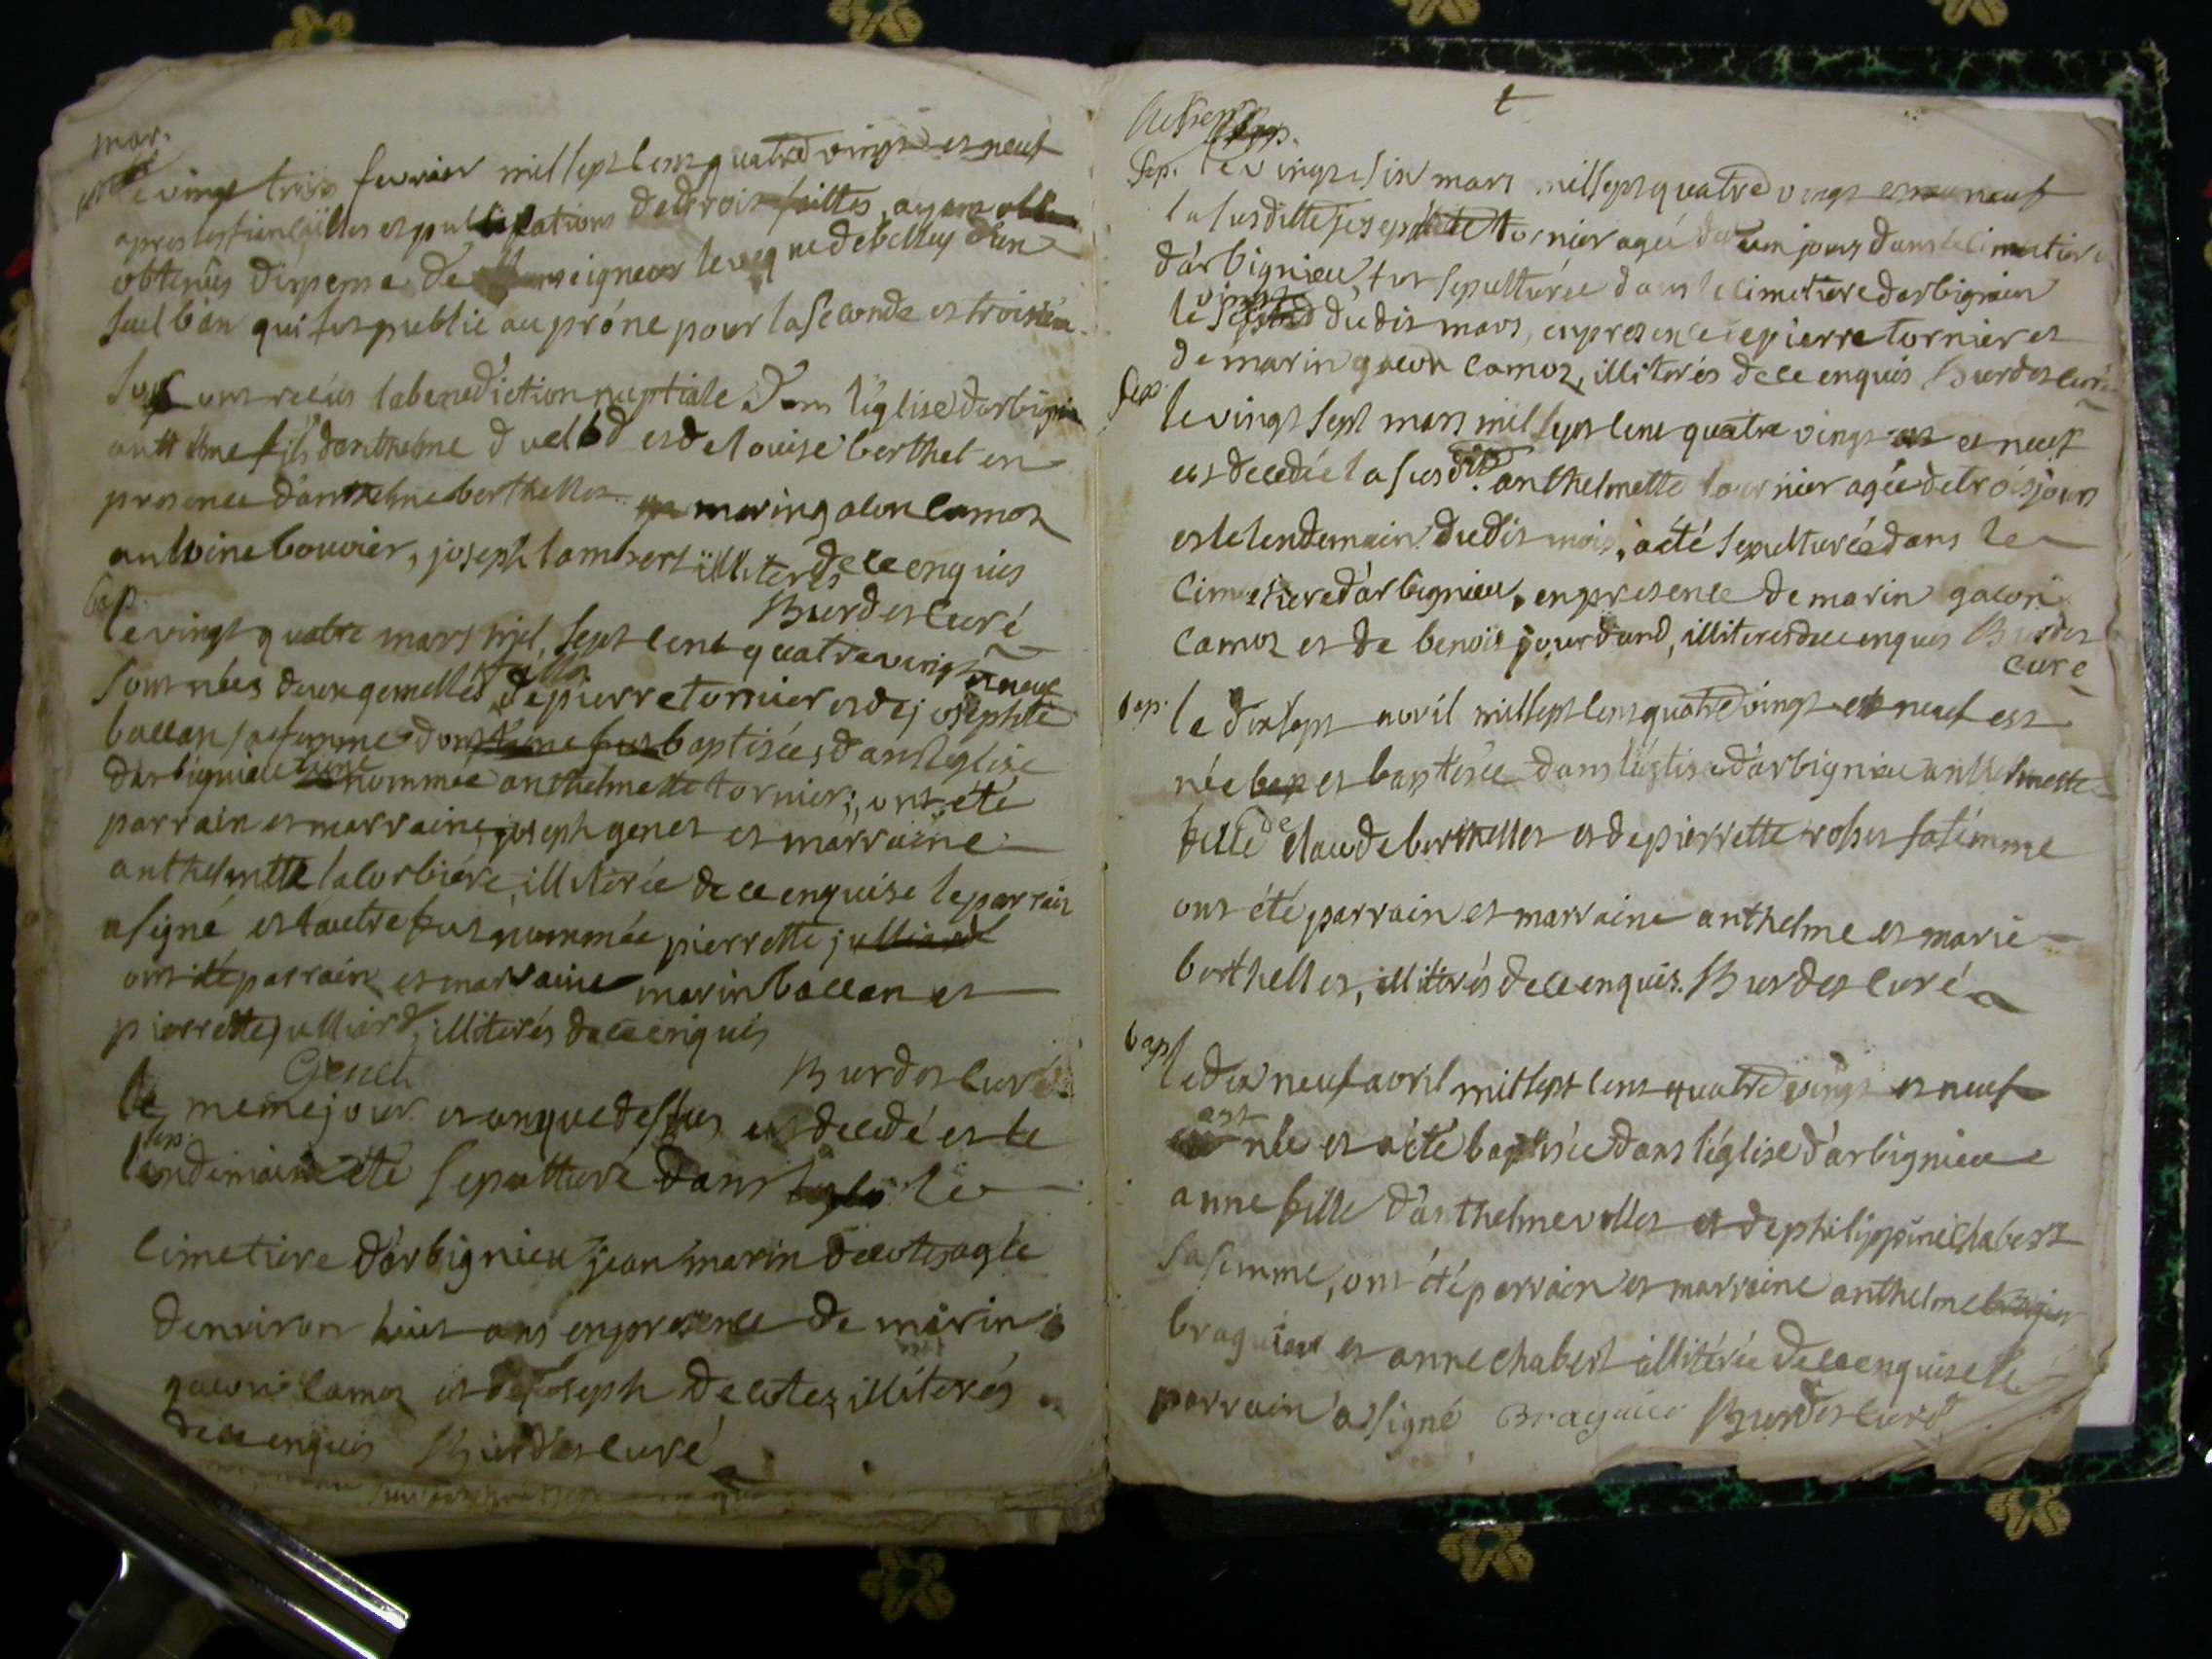 mar.
le vingt trois fevrier mil sept cent quatre vingt et neuf
apres les fiencailles et publications de trois faittes, ayant
obtenus dispense de monseigneur leveque de belley d'un
seul ban qui fut publié au próne pour la seconde et troisiem
ont recus la benediction nuptiale dans l'église d'arbignieu
anthelme fils d'anthelme et de louise berthet en
presence d'anthelme berthellet marin gacon camoz
antoine bouvier, joseph lambert illiterés de ce enquis
Burdet curé
bap.
le vingt quatre mars mil sept cent quatre vingt et neuf
sont nées deux gemelles filles de pierre tornier et de josephte
ballan sa femme dont baptisées dans l'eglise
d'arbignieu l'une nommée anthelmette tornier; ont été
parrain et marraine, joseph genet et marraine
anthelmette lacorbiére, illiterée de ce enquise le parrain
a signé et l'autre fut nommée pierrette julliard
ont été parrain et marraine marin ballan et
pierrette julliard, illiterés de ce enquis
Genet Burdet curé
le meme jour et an que dessus est decedé et le
sep.
lendemain a été sepulturé dans le
cimetiere d'arbignieu jean marin decotez agée
d'environ huit ans en presence de marin
gacon camoz et de joseph decotez illiterés
de ce enquis Burdet curé
sep. le vingt six mars mil sept quatre vingt et neuf
la susditte josephte tornier ageé de un jours dans le cimetiere
d'arbignieu, fut sepulturée dans le cimetiere d'arbignieu
le vingt dudit mars, en presence de pierre tornier et
de marin gacon camoz, illiterés de ce enquis Burdet curé
sep.
le vingt sept mars mil sept cent quatre vingt et neuf
est decedée la susdite anthelmette tournier agée de trois jours
et le lendemain dudit mois, a été sepulturée dans le
cimetiere d'arbignieu, en presence de marin gacon
camoz et de benoit jourdand, illiterés de ce enquis Burdet
curé
bap. le dix sept avril mil sept cent quatre vingt et neuf est
née bap et baptisée dans l'église d'arbignieu anthelmette
fille de claude berthellet et de pierrette rosset sa femme
ont été parrain et marraine anthelme et marie
berthellet, illiterés de ce enquis. Burdet curé
bap
le dix neuf avril mil sept cent quatre vingt et neuf
est née et a été baptisée dans l'église d'arbignieu
anne fille d'anthelme vollet et de philippine chabert
sa femme, ont été parrain et marraine anthelme
braguier et anne chabert illitérée de ce enquise le
parrain a signé Braguier Burdet curé